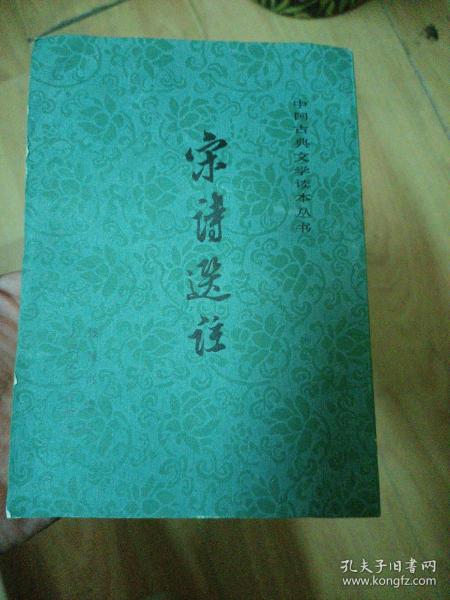 中国古典文学读本丛书
宋诗选注
孔夫子旧书网
www.kongfz.com